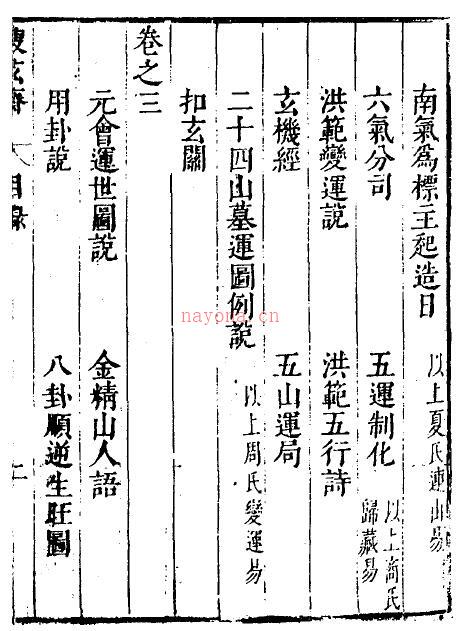 南氣為標主起造日 以上夏氏連山易
六氣分司 五運制化 以上商氏歸藏易
洪範變運說 洪範五行詩
玄機經 五山運局
二十四山墓運圖例說 以上周氏變運易
扣玄關
卷之三
元會運世圖說 金精山人語
用卦說 八卦順逆生旺圖
玄齋 目錄
nayona.cn